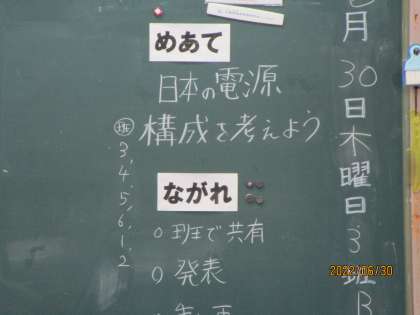 めあて
日本の電源
構成を考えよう
ながれ
○班で共有
○発表
班
3,
4,
5,
6,
1,
2
月
30
日
木
曜
日
3
班
B
2022/06/30